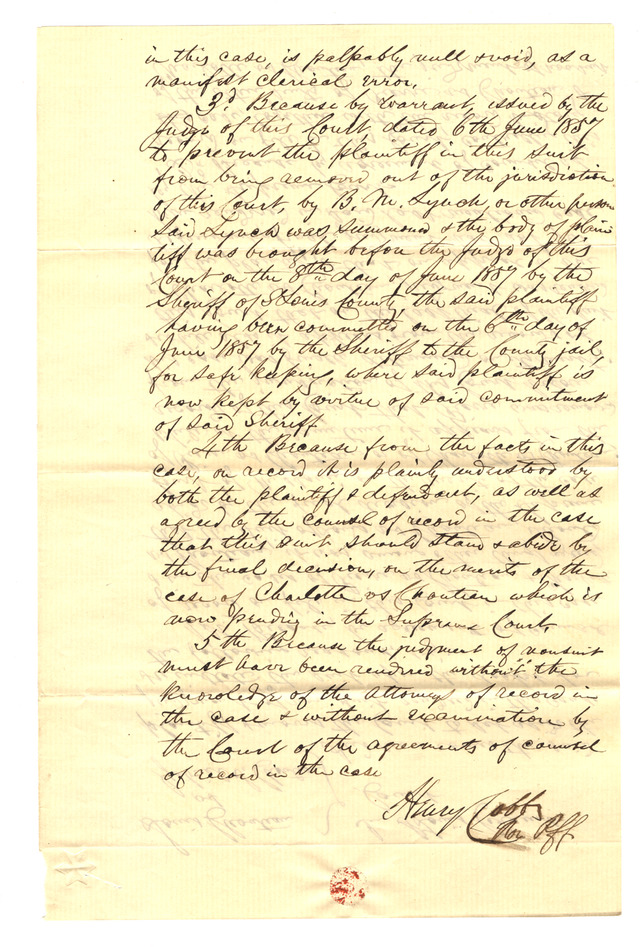 in this case, is palpably null & void, as a
manifest clerical error.
3d Because by warrant, issued by the
Judge of this Court, dated 6th June 1857
to prevent the plaintiff in this suit
from being removed out of the jurisdiction
of this Court, by B. M. Lynch, or other person
said Lynch was summoned & the body of plain
tiff was brought before the Judge of this
Court on the 8th day of June 1857 by the
Sheriff of St Louis County, the said plaintiff
having been committed on the 6th day of
June 1857 by the Sheriff to the County jail,
for safe keeping, where said plaintiff is
now kept by virtue of said commitment
of said Sheriff
4th Because from the facts in this
case, on record it is plainly understood by
both the plaintiff & defendant, as well as
agreed by the counsel of record in the case
that this suit should stand & abide by
the final decision, on the merits of the
case of Charlotte vs Chouteau which is
now pending in the Supreme Court,
5th Because the judgment of nonsuit
must have been rendered without the
knowledge of the Attorneys of record in
the case & without examination by
the Court of the agreements of counsel
of record in the case
Henry Cobbs
for Plff